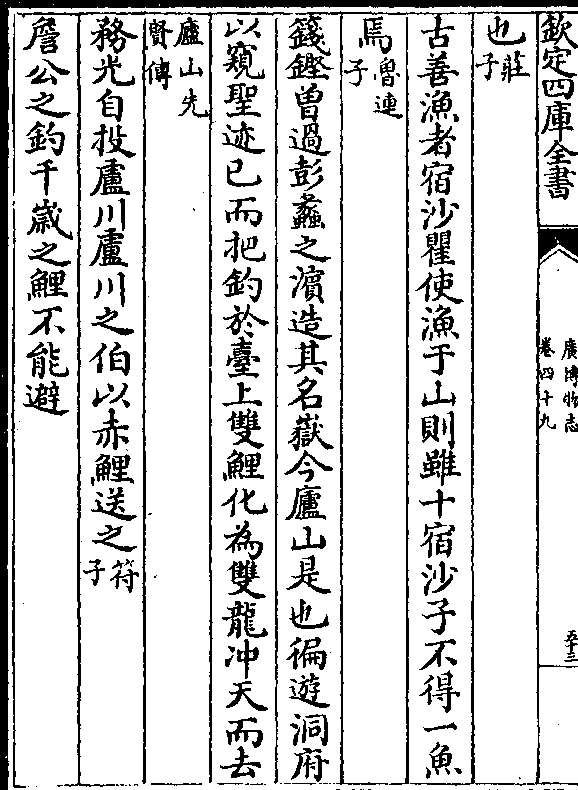 欽定四庫全書
廣博物志
卷四十九
五十三
也莊子
古善漁者宿沙瞿使漁于山則雖十宿沙子不得一魚
焉魯連子
籛鏗曽過彭蠡之濵造其名嶽今廬山是也徧遊洞府
以窺聖迹已而把釣於臺上雙鯉化為雙龍冲天而去
廬山先賢傳
務光自投盧川盧川之伯以赤鯉送之符子
詹公之釣千嵗之鯉不能避